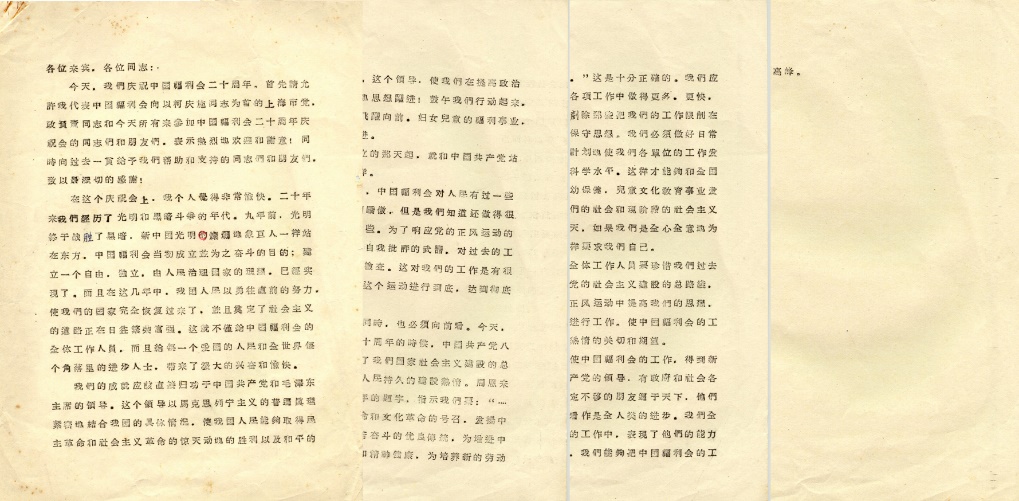 各位来宾、各位同志：
今天，我們庆祝中国福利会二十周年，首先請允
許我代表中国福利会向以柯庆施同志为首的上海市党、
政負責同志和今天所有来参加中国福利会二十周年庆
祝会的同志們和朋友們，表示热烈地欢迎和謝意！同
时向过去一貫給予我們帮助和支持的同志們和朋友們，
致以最深切的感謝！
在这个庆祝会上，我个人覚得非常愉快。二十年
来我們經历了光明和黑暗斗爭的年代。九年前，光明
終于战胜了黑暗，新中国光明
地象亘人一样站
在东方。中国福利会当初成立並为之奋斗的目的：建
立一个自由，独立，由人民治理国家的理想，已經实
現了。而且在这几年中，我国人民以勇往直前的努力，
使我們的国家完全恢复过来了，並且奠定了社会主义
的道路正在日进繁荣富强。这就不仅給中国福利会的
全体工作人員，而且給每一个爱国的人民和全世界每
个角落里的进步人士，带来了极大的兴奋和愉快。
我們的成就应該直接归功于中国共产党和毛泽东
主席的領导。这个領导以馬克思列宁主义的普遍眞理
紧密地結合我国的具体情况，使我国人民能夠取得民
主革命和社会主义革命的惊天动地的胜利以及和平的
，这个領导，使我們在提高政治
思想躍进；鼓午我們行动起来，
飞躍向前。妇女兒童的福利事业，
进。
立的那天起，就和中国共产党站
，中国福利会对人民有过一些
驕傲，但是我們知道还做得很
些。为了响应党的正风运动的
自我批評的武器，对过去的工
檢查。这对我們的工作是有很
这个运动进行到底，达到彻底
同时，也必須向前看。今天，
十周年的时候，中国共产党八
了我們国家社会主义建設的总
人民持久的建設热情。周恩来
的題字，指示我們要：“……
命和文化革命的号召，发揚中
苦奋斗的优良傳統，为增进中
和精神健康，为培养新的劳动
。”这是十分正确的。我們应
各項工作中做得更多，更快，
剷除那些把我們的工作限制在
保守思想。我們必須做好日常
計划地使我們各單位的工作发
科学水平。这样才能夠和全国
幼保健，兒童文化教育事业发
們的社会和現阶段的社会主义
天，如果我們是全心全意地为
样要求我們自己。
全体工作人員要珍惜我們过去
党的社会主义建設的总路綫，
正风运动中提高我們的思想，
进行工作，使中国福利会的工
热情的关切和期望。
使中国福利会的工作，得到新
产党的領导，有政府和社会各
定不移的朋友遍于天下，他們
看作是全人类的进步。我們全
的工作中，表現了他們的能力
，我們能夠把中国福利会的工
高峰。